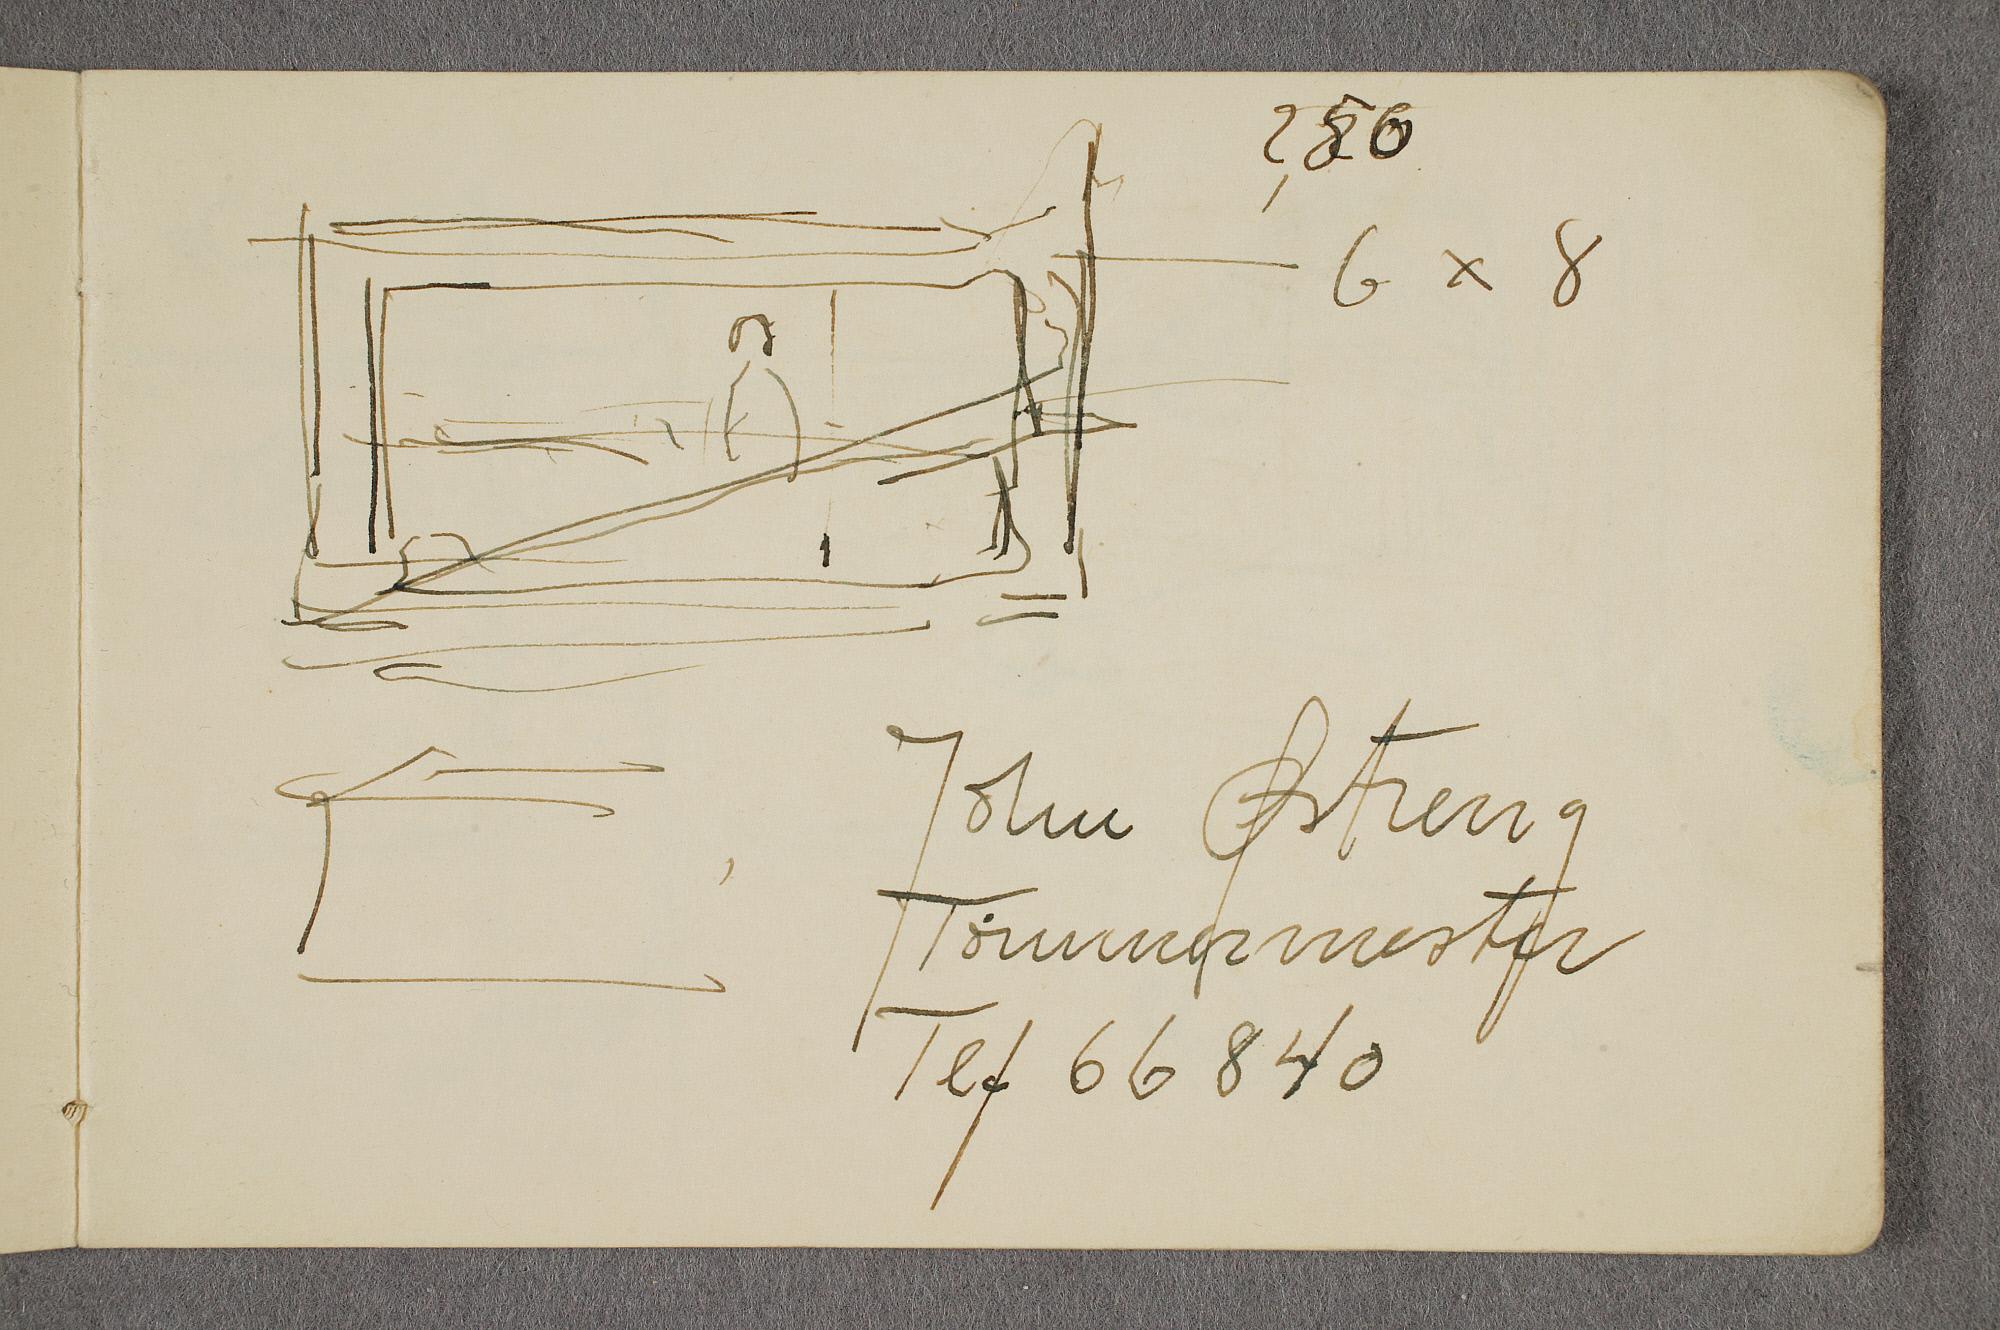 250
6 x 8
John Østreng
Tömmermester
Tel 66840